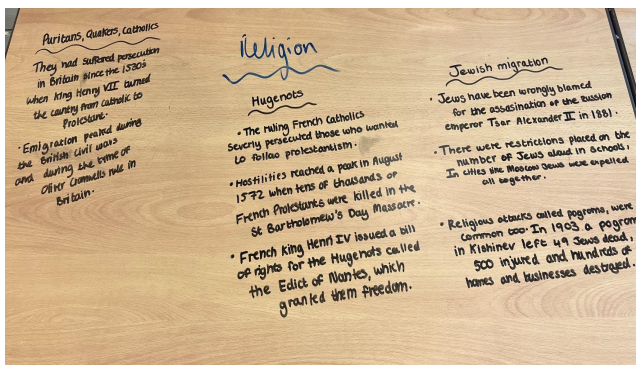 Puritans, Quakers, Catholics
They had suffered persecution
in Britain since the 1530s
when King Henry VII turned
the country from catholic to
Protestant.
• Emigration peaked during
the British Civil wars
and during the time of
Oliver Cromwells rule in
Britain.
Religion
Hugenots
• The ruling French Catholics
severly persecuted those who wanted
to follao protestantism.
• Hostilities reached a peak in August
1572 when tens of thousands of
French Protestants were killed in the
St Bartholomew's Day Massacre.
• French King Henri IV issued a bill
of rights for the Hugenots called
the Edict of Nantes, which
granted them freedom.
Jewish migration
• Jews have been wrongly blamed
for the assasination of the Russian
emperor Tsar Alexander II in 1881.
• There were restrictions placed on the
number of Jews alaid in schools,
In cities like Moscow Jews were expelled
all together.
• Religious attacks called pogroms, were
common too. In 1903 a pogrom
in Kishinev left 49 Jews dead,
500 injured and hundreds of
homes and businesses destroyed.